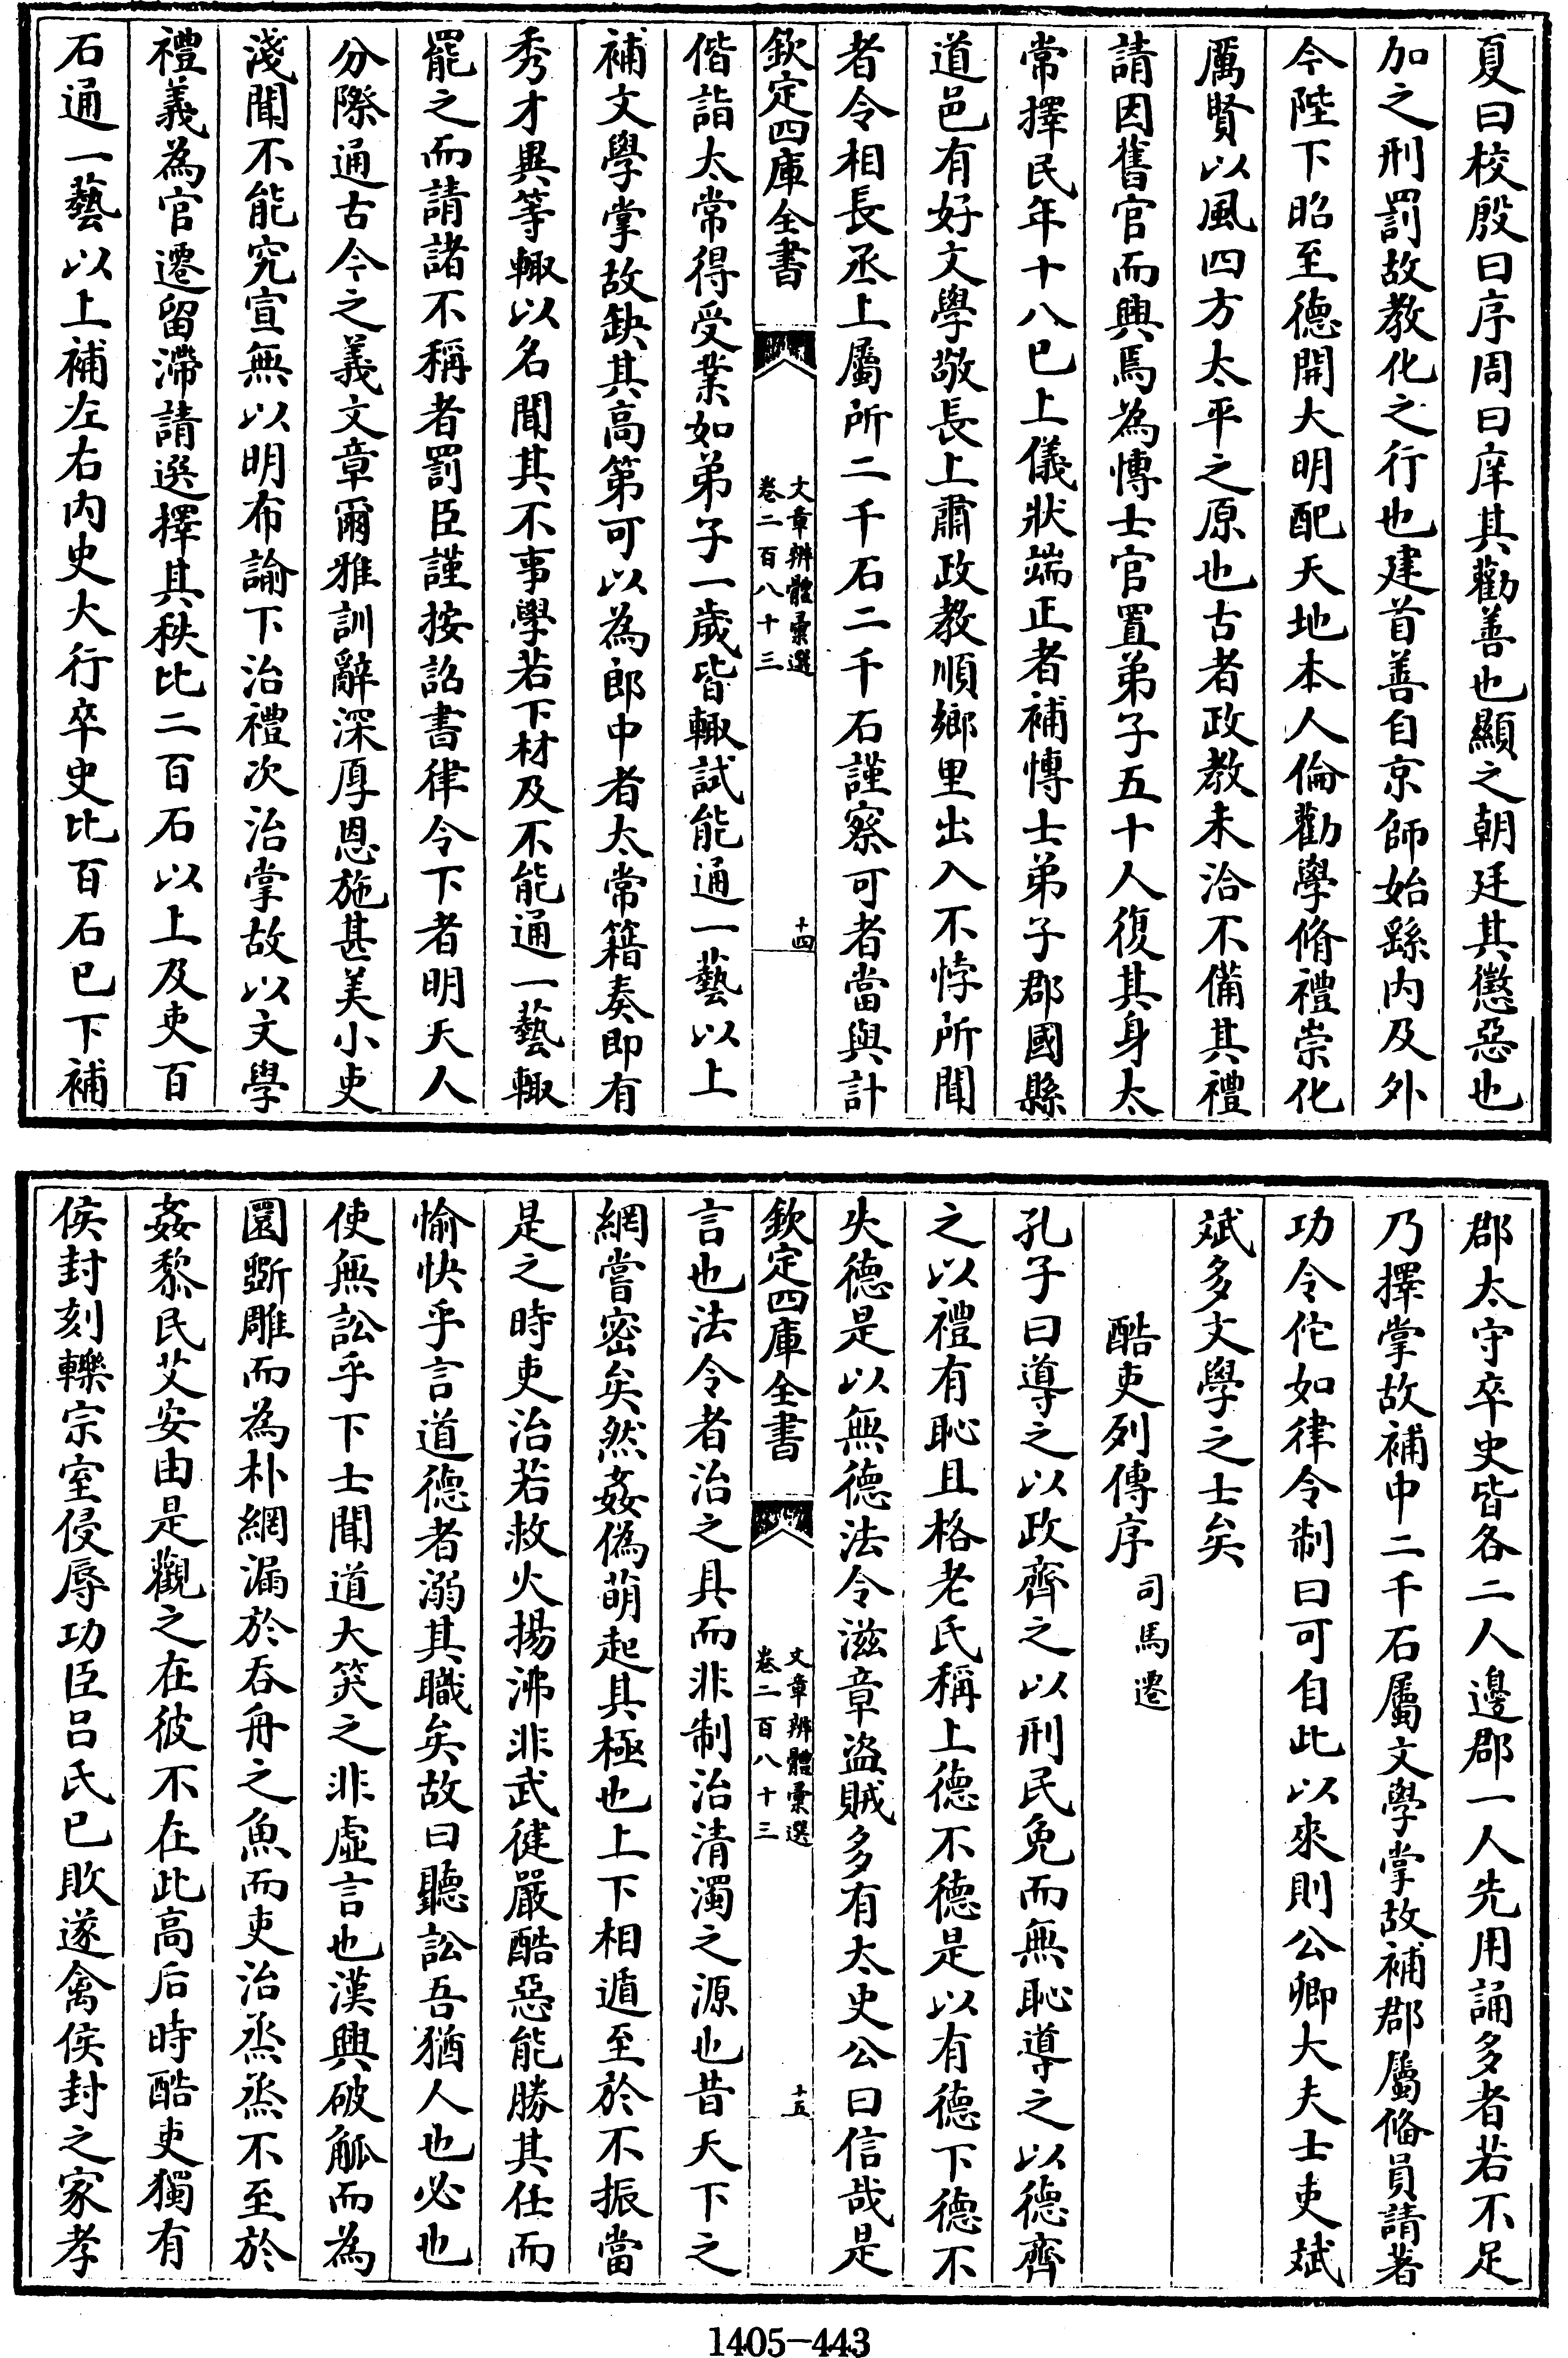 夏曰校殷曰序周曰庠其勸善也顯之朝廷其懲惡也
加之刑罰故教化之行也建首善自京師始繇内及外
今陛下昭至德開大明配天地本人倫勸學脩禮崇化
厲賢以風四方太平之原也古者政教未洽不備其禮
請因舊官而興焉為博士官置弟子五十人復其身太
常擇民年十八已上儀狀端正者補博士弟子郡國縣
道邑有好文學敬長上肅政教順鄉里出入不悖所聞
者令相長丞上屬所二千石二千石謹察可者當與計
欽定四庫全書
文章辨體彙選
卷二百八十三
十四
偕詣太常得受業如弟子一歲皆輙試能通一藝以上
補文學掌故缺其高第可以為郎中者太常籍奏即有
秀才異等輙以名聞其不事學若下材及不能通一藝輙
罷之而請諸不稱者罰臣謹按詔書律令下者明天人
分際通古今之義文章爾雅訓辭深厚恩施甚美小吏
淺聞不能究宣無以明布諭下治禮次治掌故以文學
禮義為官遷留滯請選擇其秩比二百石以上及吏百
石通一藝以上補左右内史大行卒史比百石已下補
郡太守卒史皆各二人邊郡一人先用誦多者若不足
乃擇掌故補中二千石屬文學掌故補郡屬備員請著
功令佗如律令制曰可自此以來則公卿大夫士吏斌
斌多文學之士矣
酷吏列傳序 司馬遷
孔子曰導之以政齊之以刑民免而無恥導之以德齊
之以禮有恥且格老氏稱上德不德是以有德下德不
失德是以無德法令滋章盜賊多有太史公曰信哉是
欽定四庫全書
文章辨體彙選
卷二百八十三
十五
言也法令者治之具而非制治清濁之源也昔天下之
網嘗密矣然姦偽萌起其極也上下相遁至於不振當
是之時吏治若救火揚沸非武健嚴酷惡能勝其任而
愉快乎言道德者溺其職矣故曰聽訟吾猶人也必也
使無訟乎下士聞道大笑之非虛言也漢興破觚而為
圜斵雕而為朴網漏於吞舟之魚而吏治烝烝不至於
姦黎民艾安由是觀之在彼不在此高后時酷吏獨有
侯封刻轢宗室侵辱功臣吕氏已敗遂禽侯封之家孝
1405-443